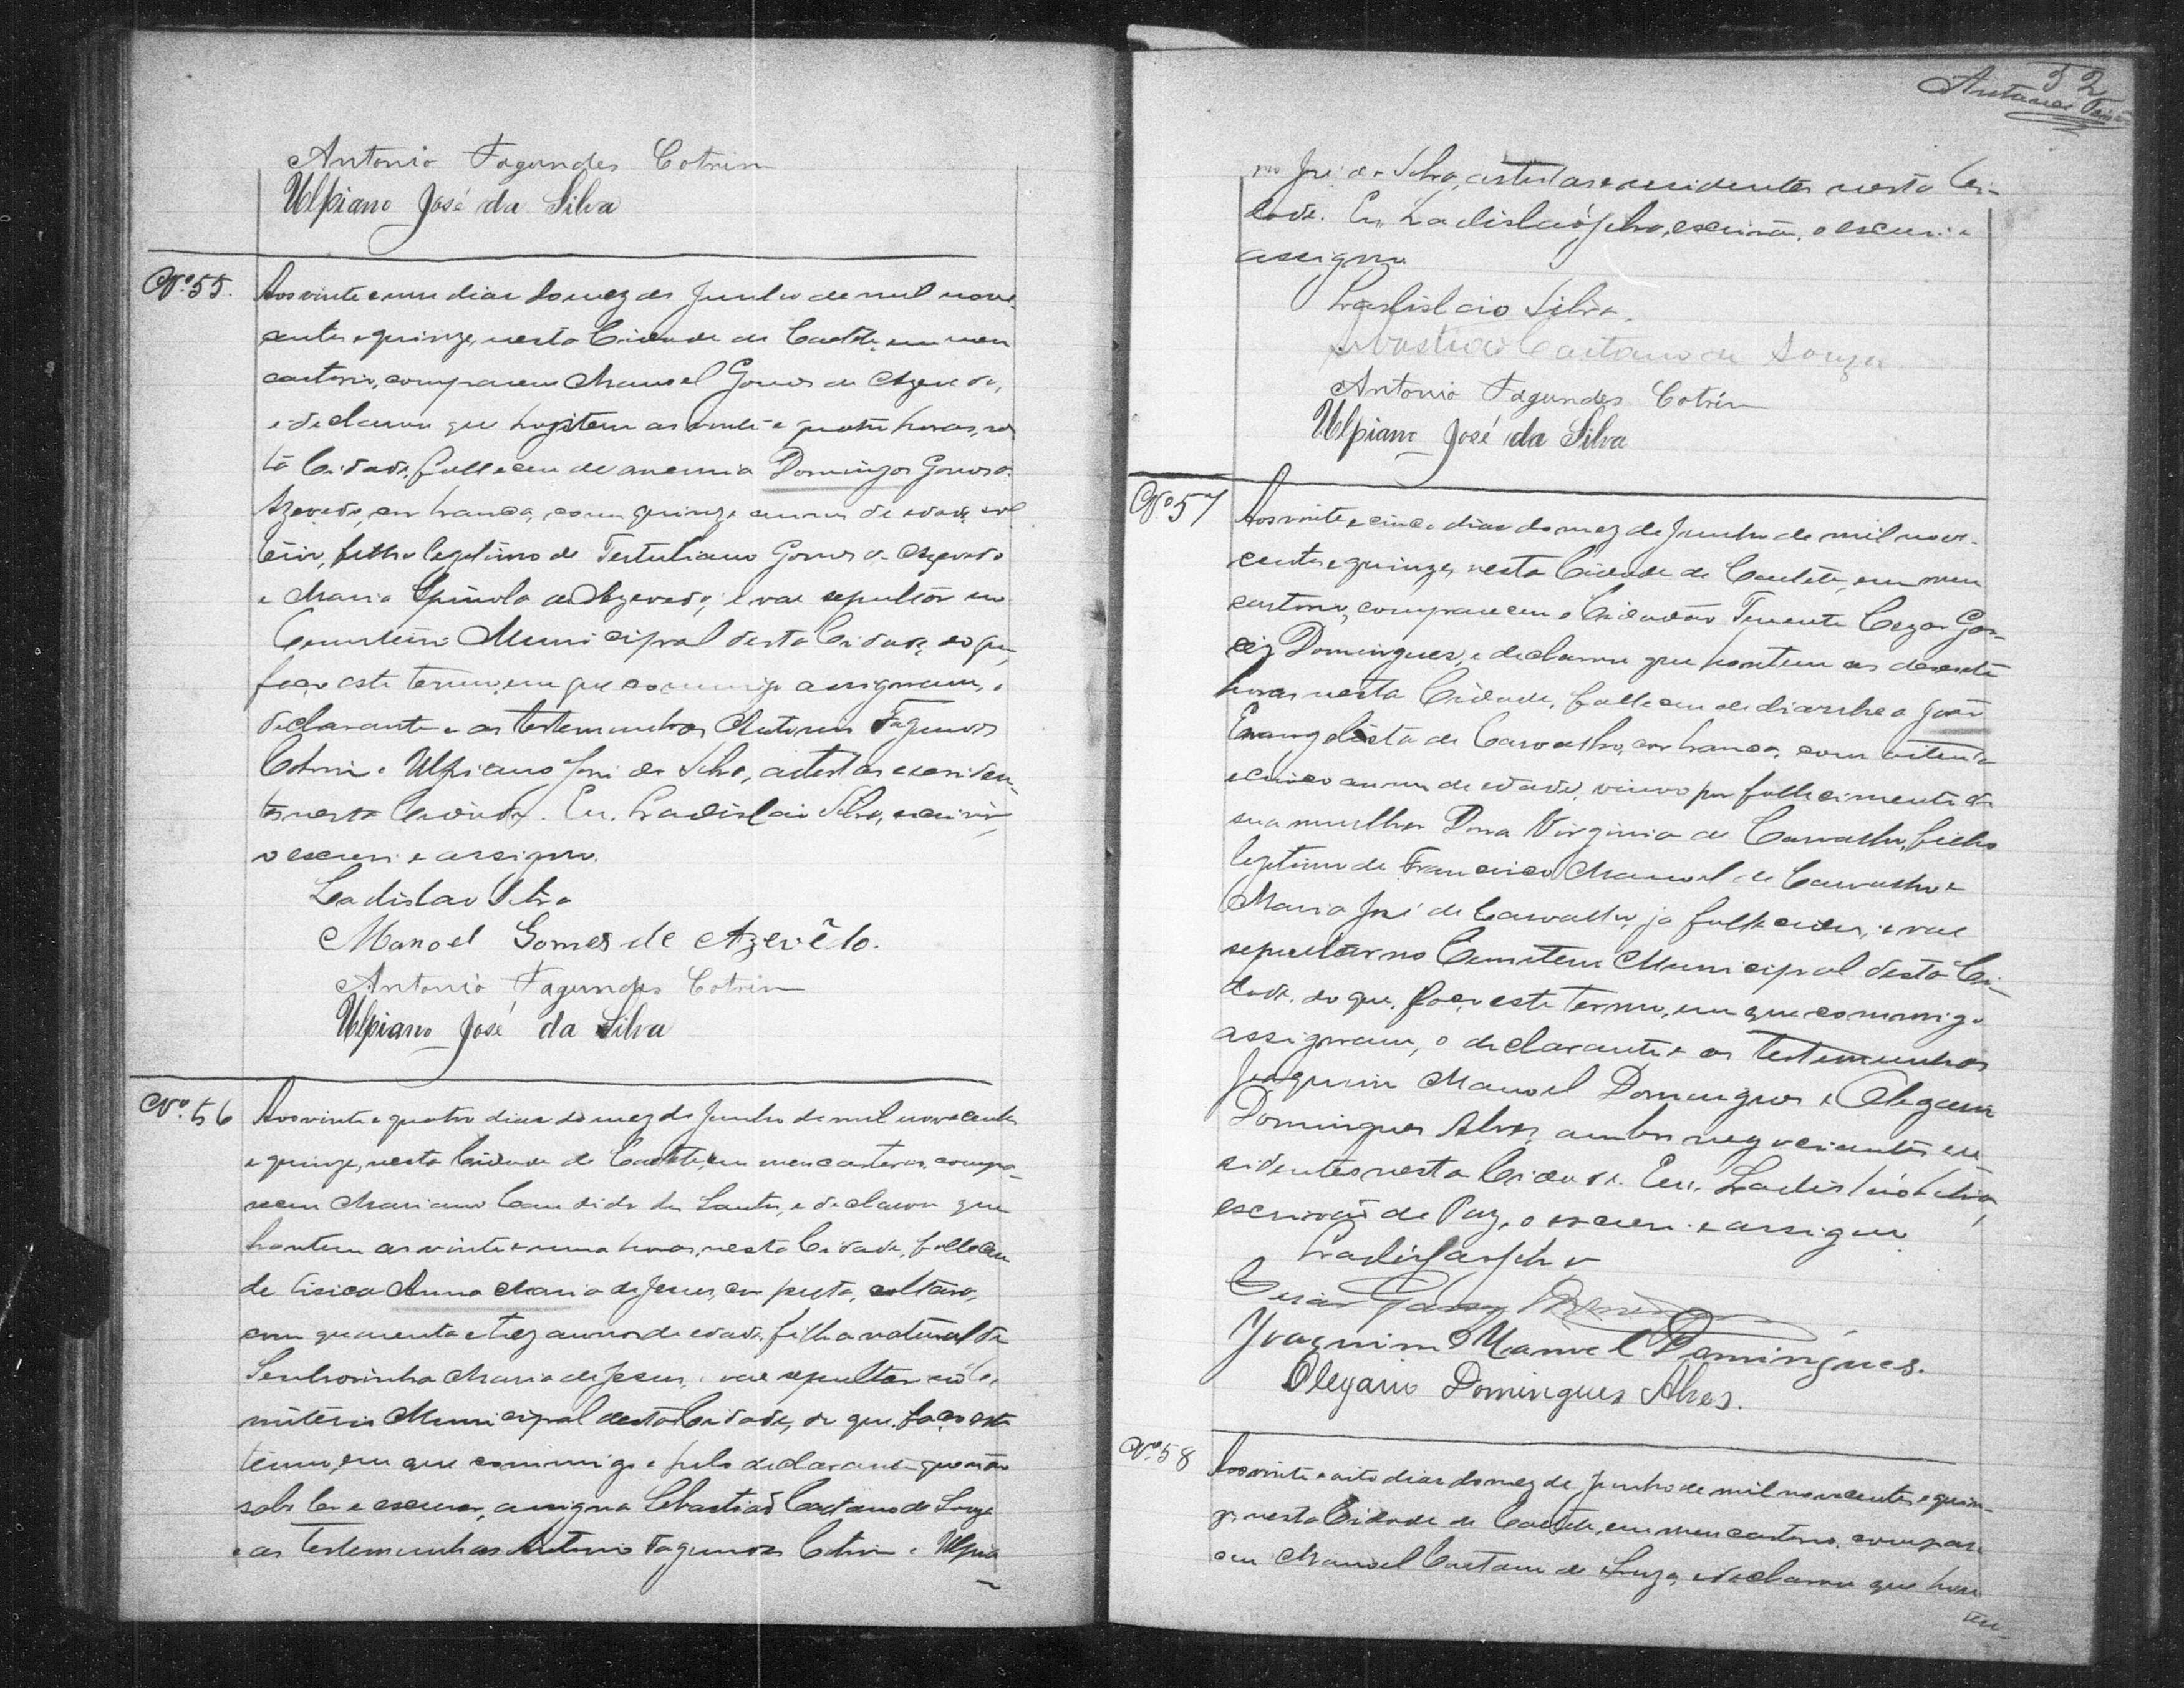 Antonio Fagundes Cotrim
Ulpiano José da Silva
Nº 55.
Aos vinte e um dias do mez de Junho de mil nove-
centos e quinze, nesta Cidade de Caeteté, em meu
cartorio, compareceu Manoel Gomes de Azevedo,
e declarou que hontem as vinte e quatro horas, nes
ta Cidade, falleceu de anemia Domingos Gomes de
Azevedo, cor branca, com quinze annos de edade, sol
teiro, filho legitimo de Tertuliano Gomes de Azevedo
e Maria Spinola de Azevedo, e vae sepultar no
Cemiterio Municipal desta Cidade, do que,
faço este termo, em que commigo assignam, o
declarante e as testemunhas Antonio Fagundes
Cotrim e Ulpiano José da Silva, artistas e residen-
tes nesta Cidade. Eu, Ladislau Silva, escrivão,
o escrevi e assigno.
Ladislau Silva
Manoel Gomes de Azevêdo.
Antonio Fagundes Cotrim
Ulpiano José da Silva
Nº 56
Aos vinte e quatro dias do mez de Junho de mil novecentos
e quinze, nesta Cidade de Caeteté, em meu cartorio, compa-
receu Mariano Candido dos Santos, e declarou que
hontem as vinte e uma horas, nesta Cidade, falleceu
de tisica Anna Maria de Jesus, cor preta, solteira,
com quarenta e trez annos de edade, filha natural de
Senhorinha Maria de Jesus, e vae sepultar no Ce-
miterio Municipal desta Cidade, do que, faço este
termo, em que commigo e pelo declarante que não
sabe ler e escrever, assigna Sebastião Caetano de Souza
e as testemunhas Antonio Fagundes Cotrim e Ulpia
52
Antunes
no José da Silva, artistas e residentes nesta Ci-
dade. Eu, Ladislau Silva, escrivão, o escrevi e
assigno
Ladislao Silva.
Sebastião Caetano de Souza
Antonio Fagundes Cotrim
Ulpiano José da Silva
Nº 57
Aos vinte e cinco dias do mez de Junho de mil nove-
centos e quinze, nesta Cidade de Caeteté, em meu
cartorio, compareceu o Cidadão Tenente Cezar Gar-
cez Domingues, e declarou que hontem as dezesete
horas nesta Cidade, falleceu de diarrhea João
Evangelista de Carvalho, cor branca, com oitenta
e cinco annos de edade, viuvo por fallecimento de
sua mulher Dona Virginia de Carvalho, filho
legitimo de Francisco Manoel de Carvalho e
Maria José de Carvalho, ja fallecidos, e vae
sepultar no Cemiterio Municipal desta Ci-
dade, do que, faço este termo, em que commigo
assignam, o declarante e as testemunhas
Joaquim Manoel Domingues e Olegario
Domingues Alves, ambos negociantes e re
sidentes nesta Cidade. Eu, Ladislau Silva,
escrivão de Paz, o escrevi e assigno
Ladislau Silva
Cezar Garcez Domingues
Joaquim Manoel Domingues.
Olegario Domingues Alves.
Nº 58
Aos vinte e oito dias do mez de Junho de mil novecentos e quin-
ze, nesta Cidade de Caeteté, em meu cartorio, compare
ceu Manoel Caetano de Souza, e declarou que hon
tem-